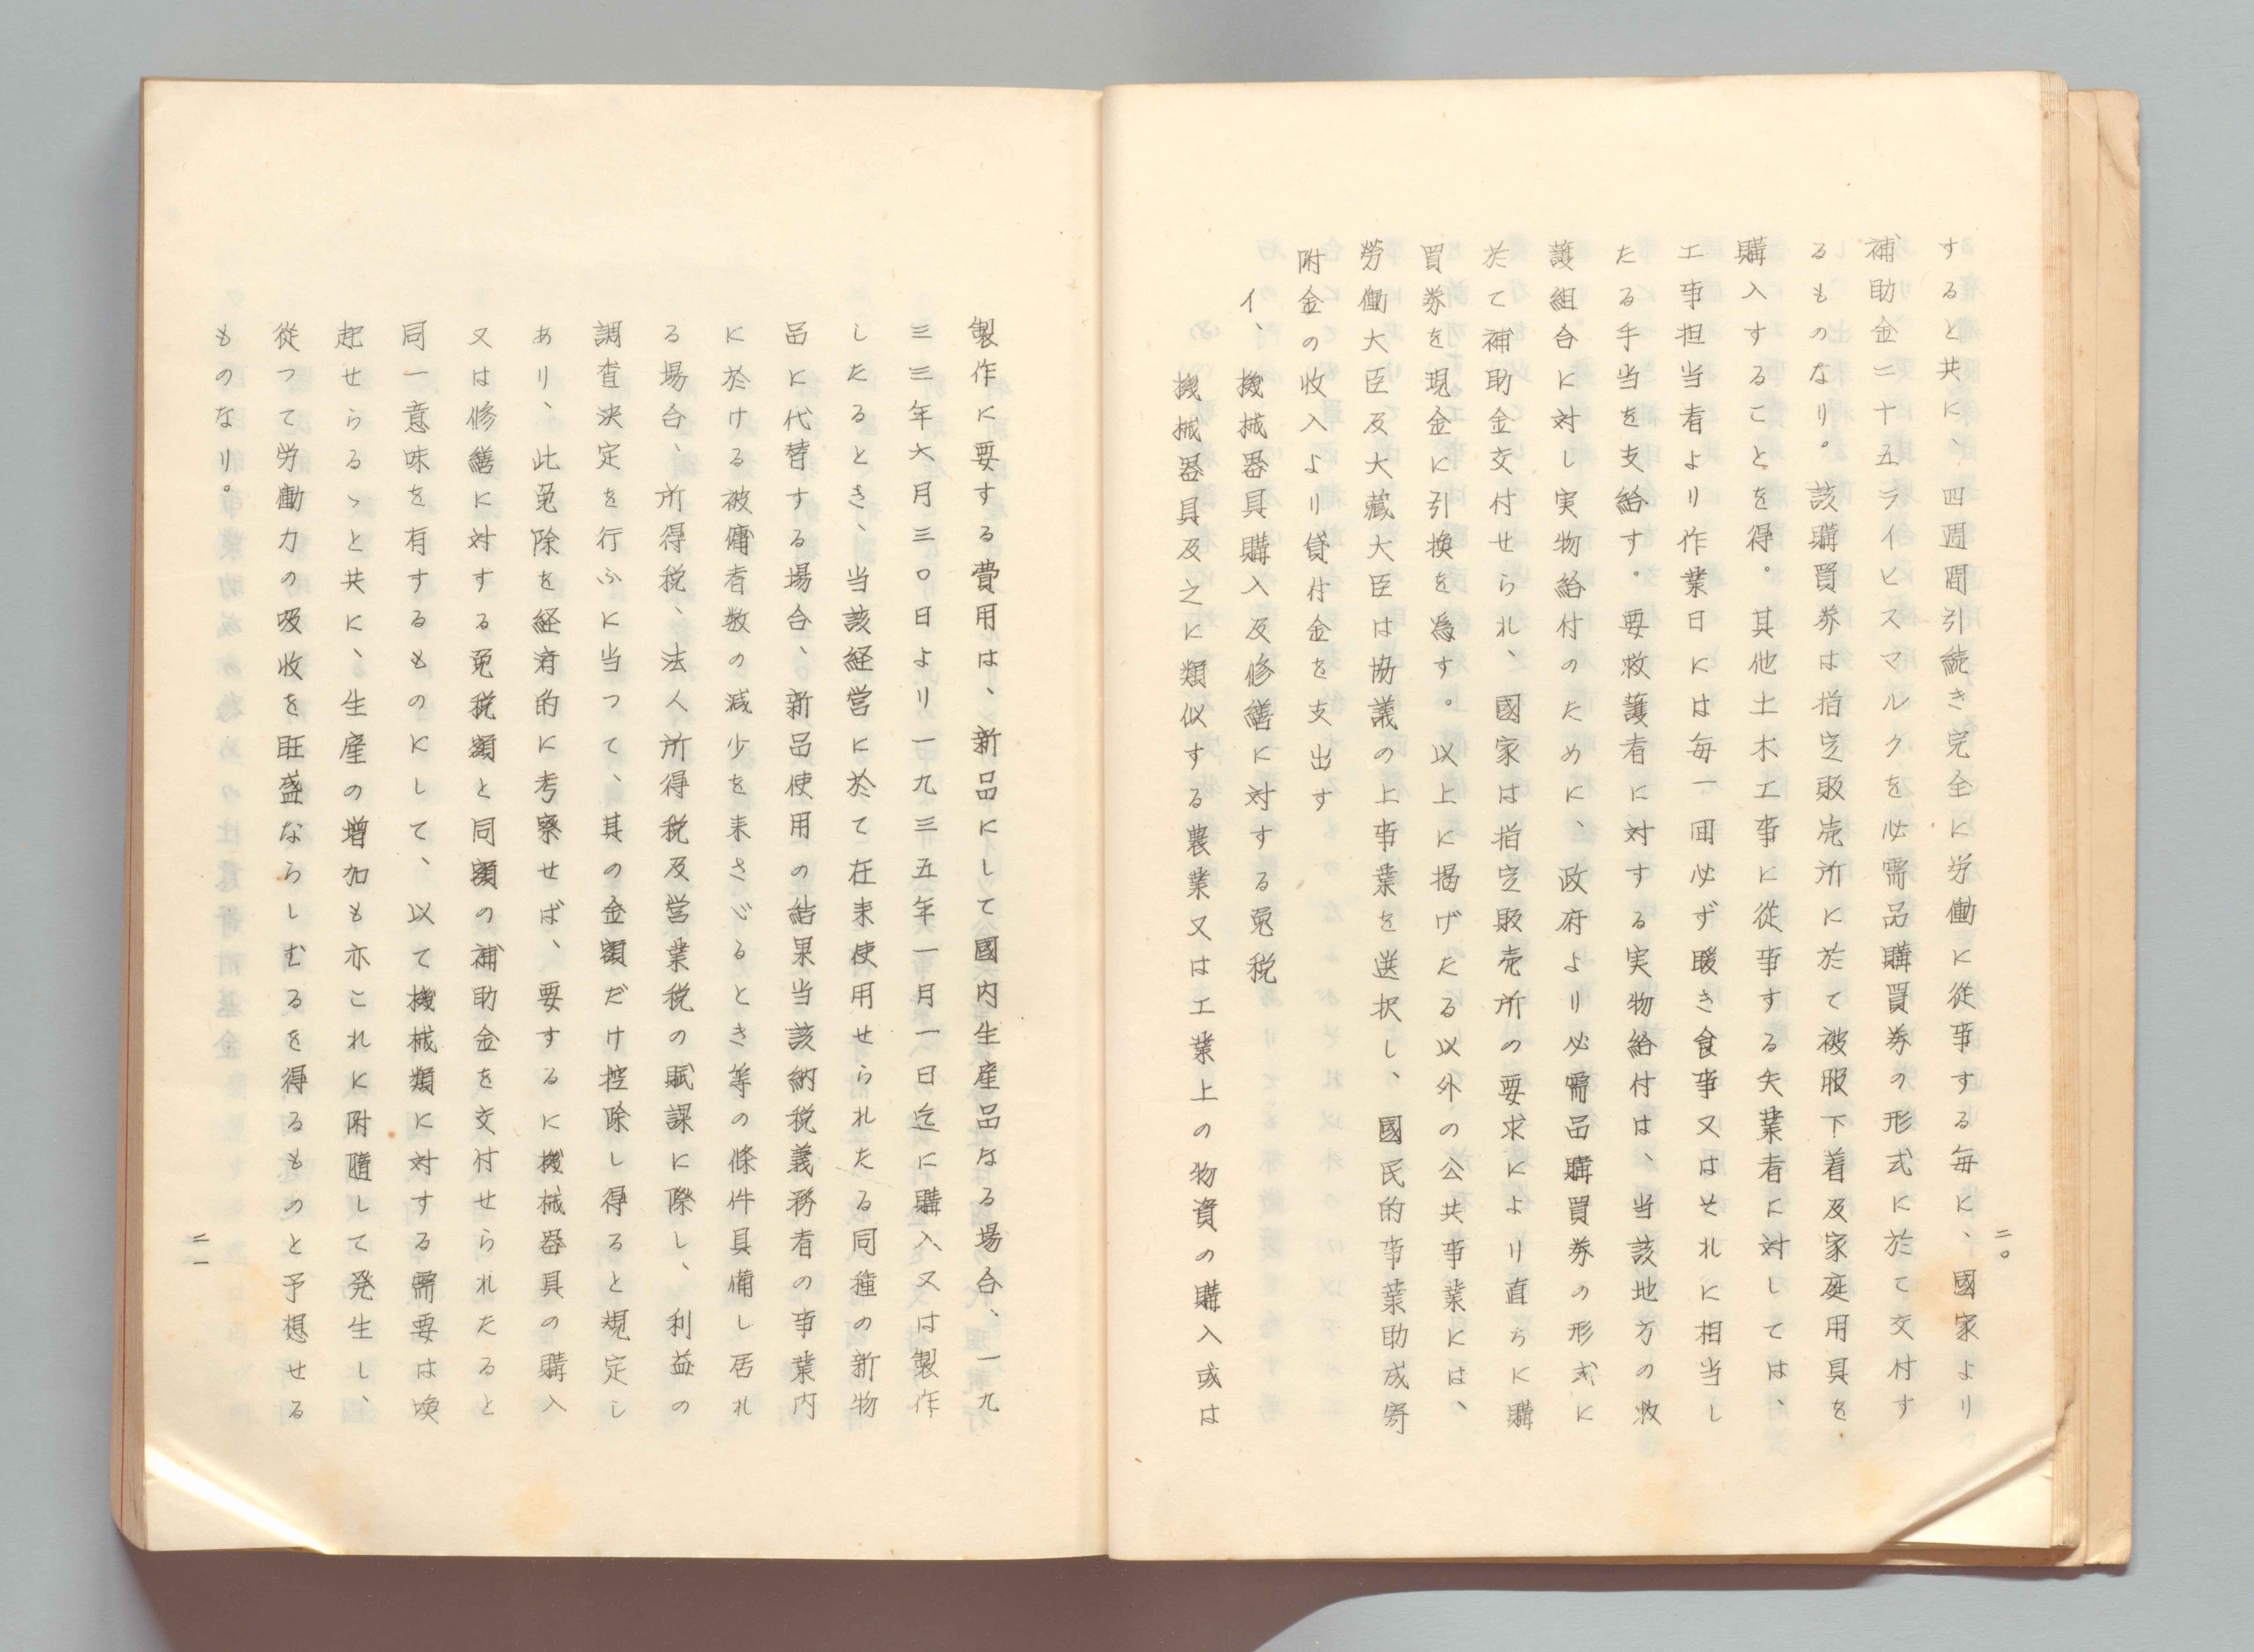 すると共に、四週間引続き完全に労働に従事する毎に、國家より
補助金二十五ライヒスマルクを必需品購買券の形式に於て交付す
るものなり。該購買券は指定販売所に於て被服下着及家庭用具を
購入することを得。其他土木工事に従事する失業者に対しては、
工事担当者より作業日には毎一回必ず暖き食事又はそれに相当し
たる手当を支給す。要救護者に対する実物給付は、当該地方の救
護組合に対し実物給付のために、政府より必需品購買券の形式に
於て補助金交付せられ、國家は指定販売所の要求により直ちに購
買券を現金に引換を為す。以上に掲げたる以外の公共事業には、
労働大臣及大藏大臣は協議の上事業を選択し、國民的事業助成寄
附金の收入より貸付金を支出す
イ、機械器具購入及修繕に対する免税
機械器具及之に類似する農業又は工業上の物資の購入或は
二〇
製作に要する費用は、新品にして國内生産品なる場合、一九
三三年六月三〇日より一九三五年一月一日迄に購入又は製作
したるとき、当該経営に於て在来使用せられたる同種の新物
品に代替する場合、新品使用の結果当該納税義務者の事業内
に於ける被傭者数の減少を来さゞるとき等の條件具備し居れ
る場合、所得税、法人所得税及営業税の賦課に際し、利益の
調査決定を行ふに当つて、其の金額だけ控除し得ると規定し
あり、此免除を経済的に考察せば、要するに機械器具の購入
又は修繕に対する免税額と同額の補助金を交付せられたると
同一意味を有するものにして、以て機械類に対する需要は喚
起せらるゝと共に、生産の増加も亦これに附随して発生し、
従つて労働力の吸收を旺盛ならしむるを得るものと予想せる
ものなり。
二一